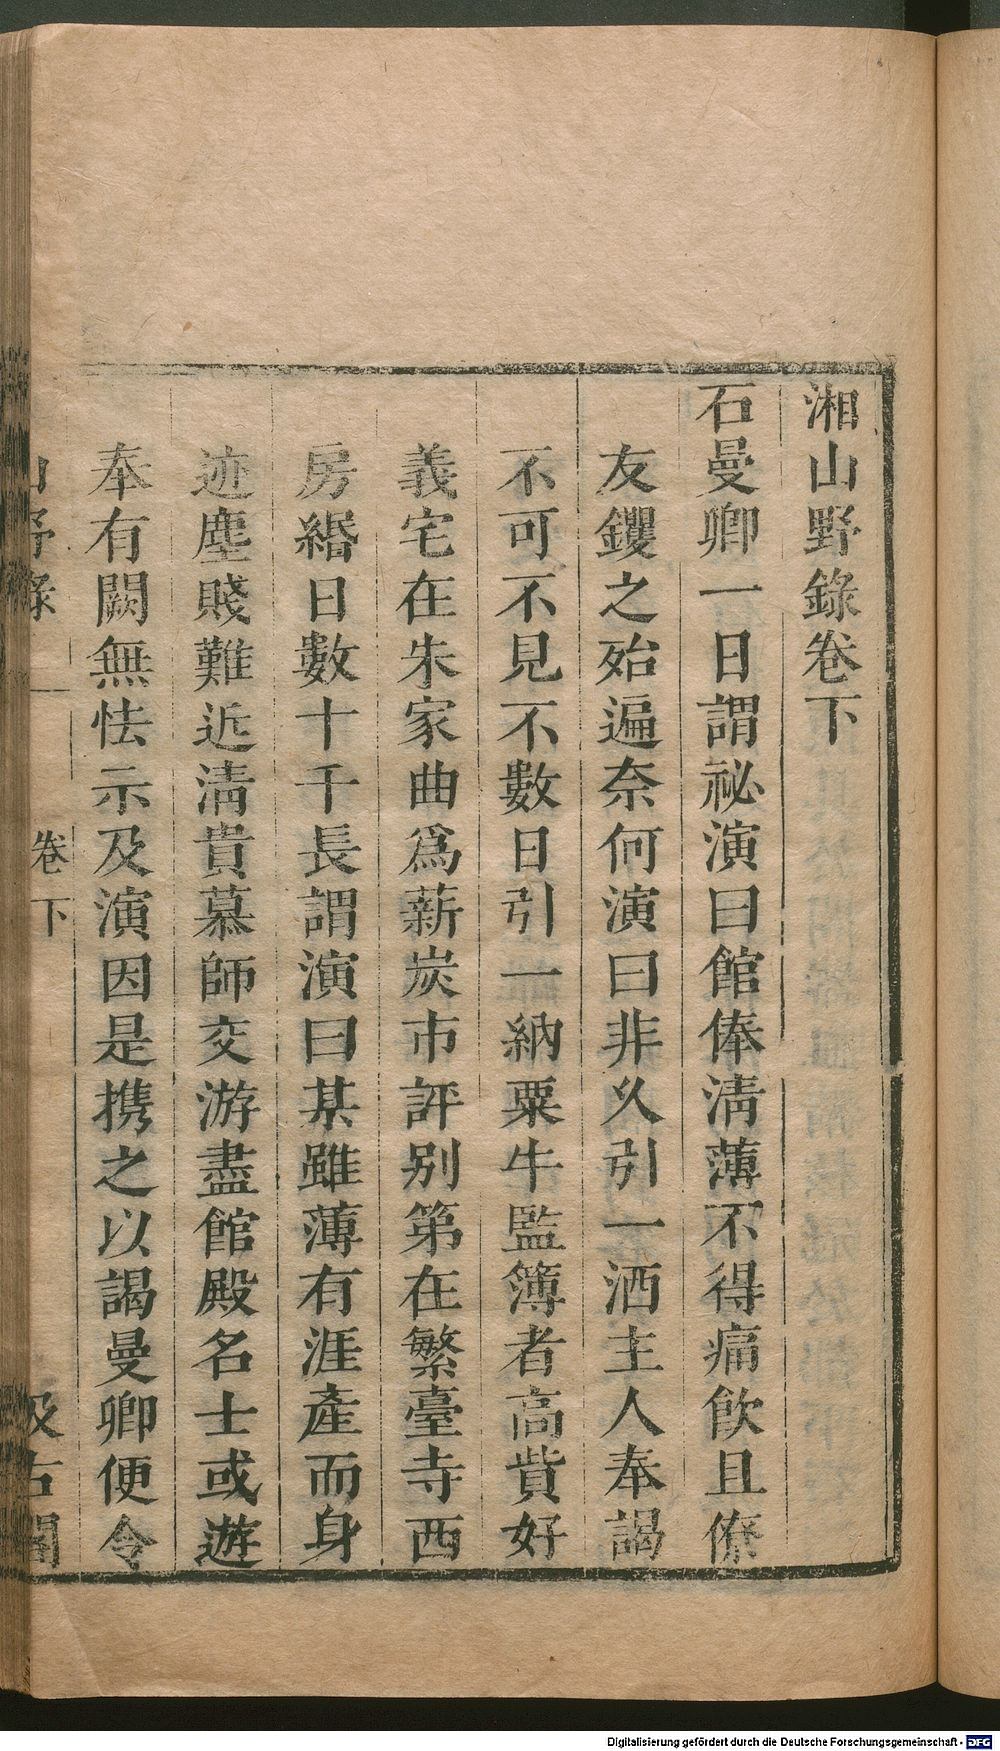 湘山野錄卷下
石曼卿一日謂祕演曰館俸淸薄不得痛飲且僚
友钁之殆遍奈何演曰非乆引一洒主人奉謁
不可不見不數日引一納粟牛監簿者高貲好
義宅在朱家曲爲薪炭市評別第在繁臺寺西
房緡日數十千長謂演曰某雖薄有涯產而身
迹塵賤難近淸貴慕師交游盡館殿名士或遊
奉有闕無怯示及演因是携之以謁曼卿便令
山野錄 卷下 汲古閣
Digitalisierung gefördert durch die Deutsche Forschungsgemeinschaft - DFG